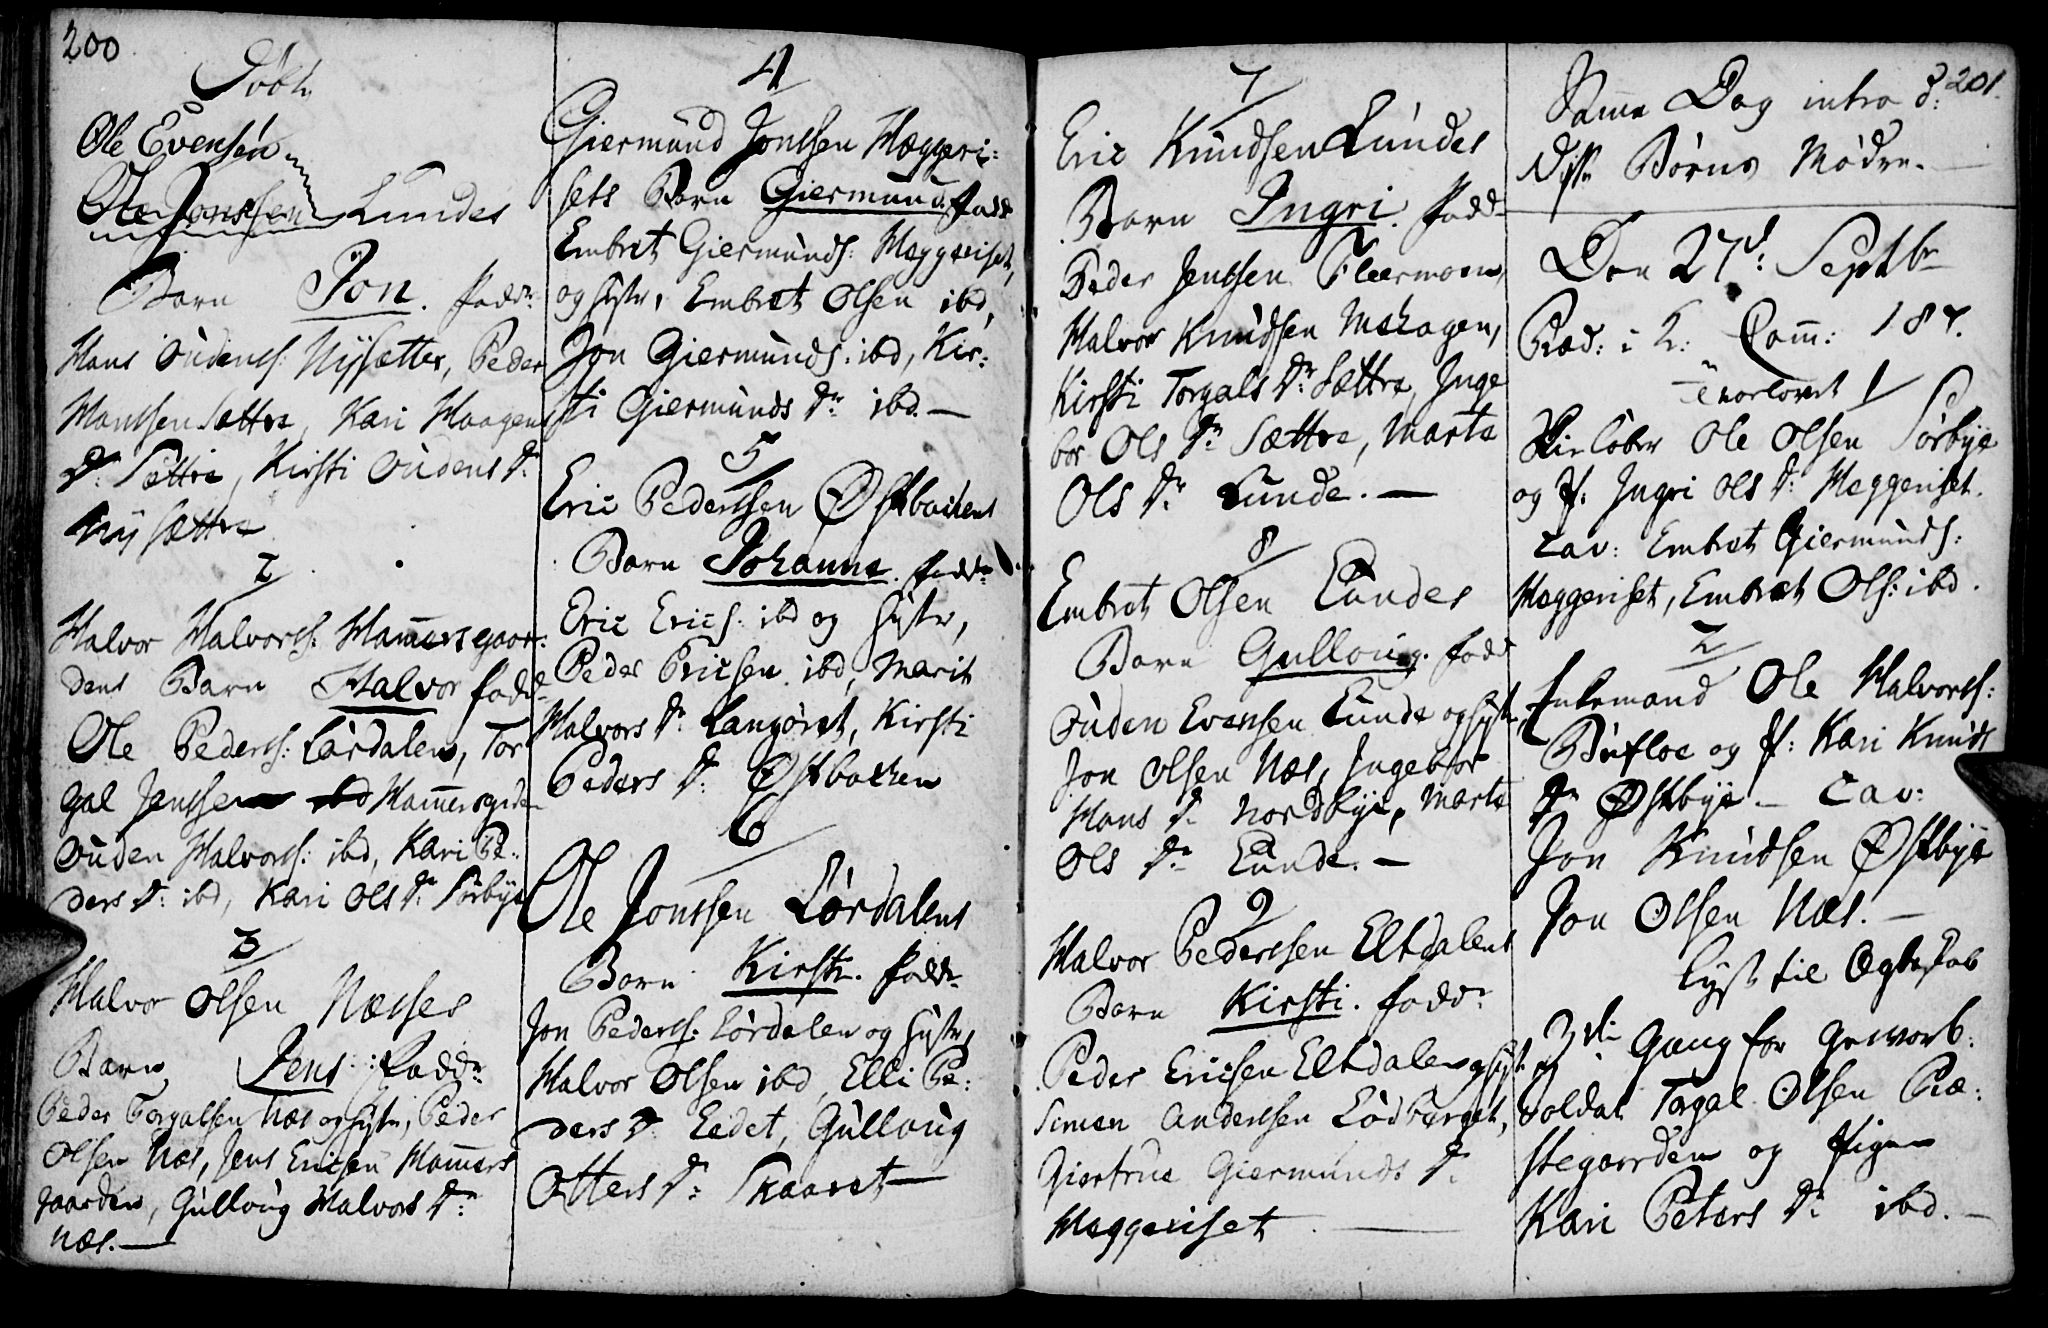 200
Døbt
Ole Evensøn
Ole Jonssen Lundes
Barn Jon. fadd:
Hans Oudens: Nysætter, Peder
Hanssen Sættre, Kari Haagens
D: Sættre, Kirsti Oudens D:
Nysættre
2
Halvor Halvorss: Ham̄ersgaar:
dens Barn Halvor fadd:
Ole Pederss: Lørdalen, Tor
gal Jenssen ibd Ham̄ersgrden
Ouden Halvorss: ibd, Kari Pe:
ders D: ibd, Kari Ols D: Sørbye
3
Halvor Olsen Næsses
Barn Jens : fadd:
Peder Torgalsen Næs og Hustr, Peder
Olsen Næs, Jens Ericsen Ham̄ers
gaarden, Gulloug Halvors D:
Næs. —
4
Giermund Jonssen Hæggeri:
sets Barn Giermund. fadd:
Embret Giermunds: Hæggeriset,
og Hustr, Embret Olsen ibd,
Jon Giermunds: ibd, Kir:
sti Giermunds D: ibd. —
5
Eric Pederssen Østbackens
Barn Johanne. fadd:
Eric Erics: ibd og Hustr,
Peder Ericsen ibd, Marit
Halvors D: Langøret, Kirsti
Peders D: Østbacken
6
Ole Jonssen Lørdalens
Barn Kirsti. fadd:
Jon Pederss: Lørdalen og Hustr,
Halvor Olsen ibd, Elli Pe:
ders D: Eedet, Gulloug
Otters D: Skaaret —
7
Eric Knudsen Lundes
Barn Ingri. fadd:
Peder Jenssen Fleermoen,
Halvor Knudsen Mohagen,
Kirsti Torgals D: Sættre, Inge
bor Ols D: Sættre, Marte
Ols D: Lunde. —
8
Embret Olsen Lundes
Barn Gulloug. fadd
Ouden Evensen Lunde og Hust:
Jon Olsen Næs, Ingebor
Hans D: Nordbye, Marte
Ols D: Lunde. —
9
Halvor Pederssen Eltdalens
Barn Kirsti. fadd:
Peder Ericsen Eltdalen og Hust:
Simen Anderssen Lødberget,
Giertrue Giermunds D:
Hæggeriset . —
201.
Sam̄e Dag intro d:
disse Børns Mødre. —
Den 27d: Septbr
Præd: i T: Com̄: 187.
Trorlovet 1
Skieløber Ole Olsen Sørbye
og P: Ingri Ols D: Hæggeriset.
Cav: Embret Giermunds:
Hæggeriset, Embret Ols: ibd.
2
Enkemand Ole Halvorss:
Bufloe og P: Kari Knuds
D: Østbye — Cav:
Jon Knudsen Østbye
Jon Olsen Næs. —
lyst til Ægteskab
3die Gang for Gevorb:
Soldat Torgal Olsen Præ:
stegaarden og Pigen
Kari Peters D: ibd. —